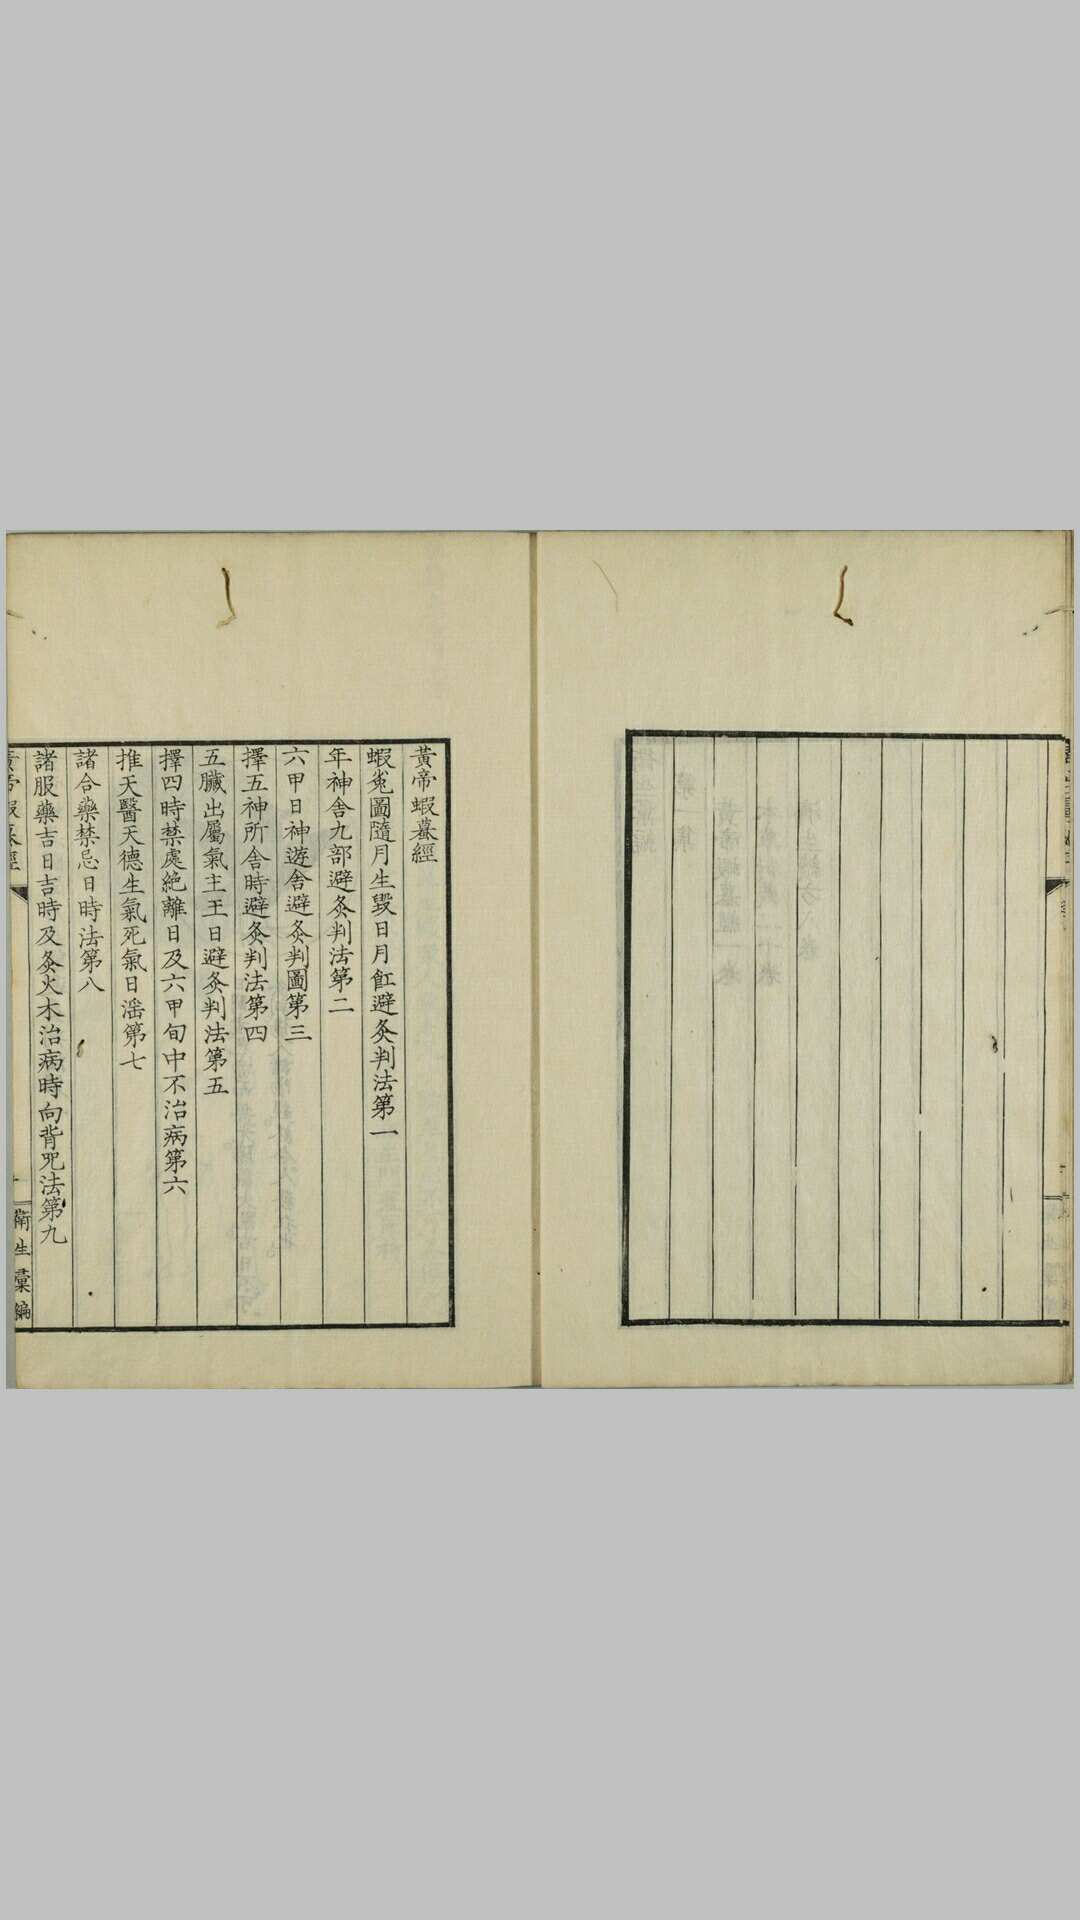 黃帝蝦蟇經
蝦兔圖隨月生毀日月飠避灸判法第一
年神舍九部避灸判法第二
六甲日神遊舍避灸判圖第三
擇五神所舍時避灸判法第四
五臟出屬氣主王日避灸判法第五
擇四時禁處絶離日及六甲旬中不治病第六
推天醫天德生氣死氣日滛第七
諸合藥禁忌日時法第八
諸服藥吉日吉時及灸火木治病時向背咒法第九
黃帝蝦蟇經
衛生彙編